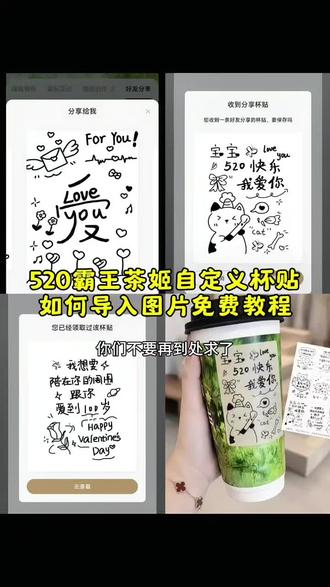 好友分享
分享给我
For You!
爱
Love
you
收到分享杯贴
您收到一条好友分享的杯贴，要保存吗
宝宝
love
you
520快乐
我爱你
"cat"
520霸王茶姬自定义杯贴
如何导入图片免费教程
你们不要再到处求了
您已经领取过该杯贴
我想要
陪在你的周围
跟你
爱到100岁
Happy
Valentine's
Day
去查看
宝宝
love
you
520快乐
我爱你
"cat"